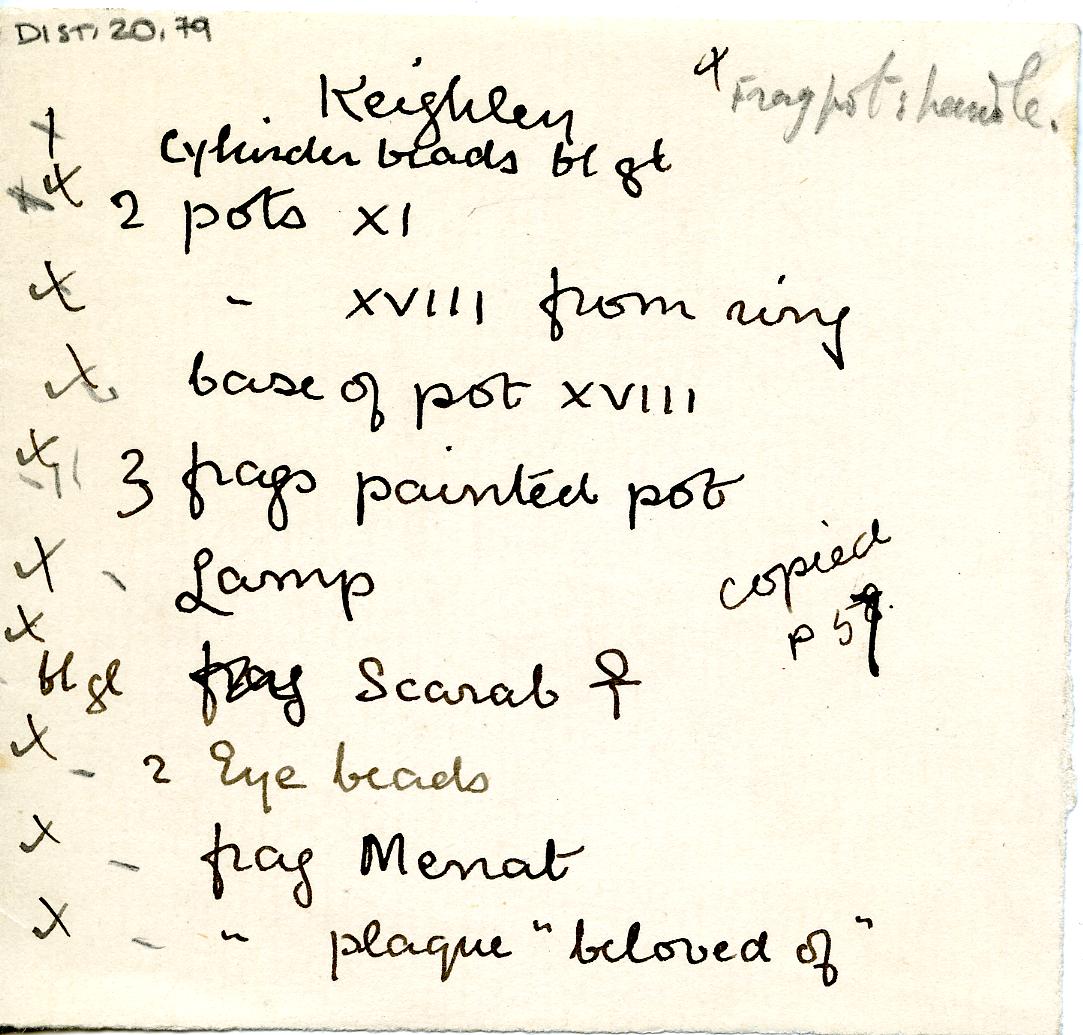 DIST. 20.79
Keighley
x Frag pot & handle.
x Cylinder beads bl gl
x 2 pots XI
x " XVIII from ring
x base of pot XVIII
x 3 frags painted pot
x - Lamp
copied
p 59
x
bl gl frag Scarab ♀
x - 2 Eye beads
x - frag Menat
x - " plaque "beloved of"